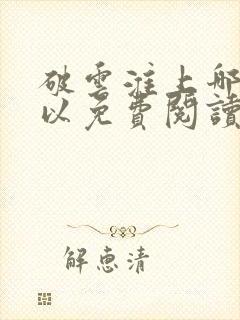 破雲淮上哪
以免費閱讀
解惠清